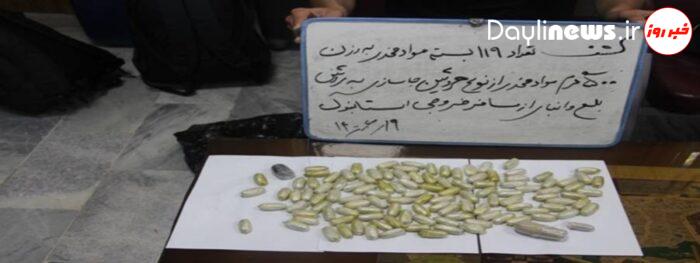 Daylinews.ir
خبر روز
کشف تعداد ۱۱۹ بسته مواد مخدر به وزن
۵۰۰ گرم مواد مخدر از نوع هروئین جاسازی به روش
بلع و انباری از مسافر خروجی استانبول